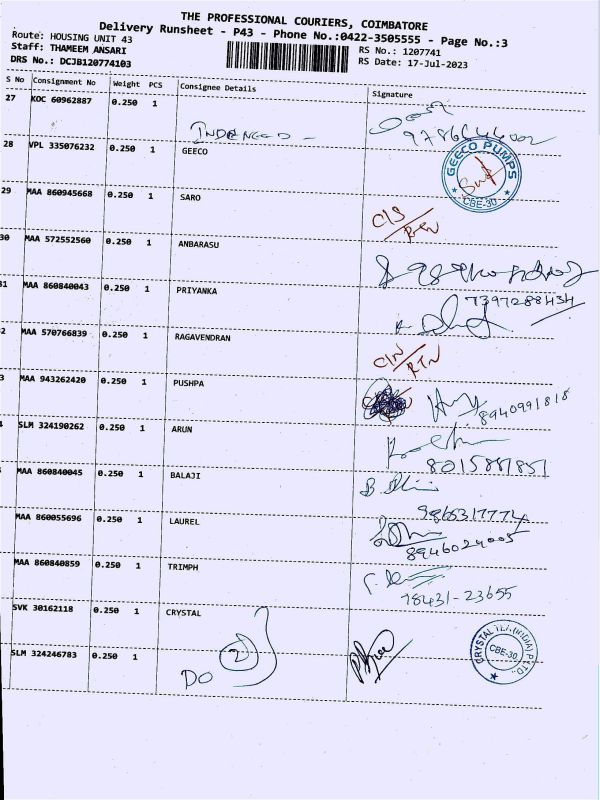 THE PROFESSIONAL COURIERS, COIMBATORE
Delivery Runsheet - P43 - Phone No.:0422-3505555 - Page No.:3
Route: HOUSING UNIT 43
Staff: THAMEEM ANSARI
DRS No.: DCJB120774103
RS No.: 1207741
RS Date: 17-Jul-2023
S No Consignment No Weight PCS Consignee Details Signature
27 KOC 60962887 0.250 1
28 VPL 335076232 0.250 1 GEECO
GEECO PUMPS
CBE-30
29 MAA 860945668 0.250 1 SARO
C/S
RTN
30 MAA 572552560 0.250 1 ANBARASU
31 MAA 860840043 0.250 1 PRIYANKA 7397288434
2 MAA 570766839 0.250 1 RAGAVENDRAN
C/N
RTN
3 MAA 943262420 0.250 1 PUSHPA
8940991818
SLM 324190262 0.250 1 ARUN
8015881851
MAA 860840045 0.250 1 BALAJI
MAA 860055696 0.250 1 LAUREL
8946024005
MAA 860840859 0.250 1 TRIMPH
78431-23655
SVK 30162118 0.250 1 CRYSTAL
SLM 324246783 0.250 1
DO 2
CRYSTAL TEX (INDIA) PVT.
CBE-30